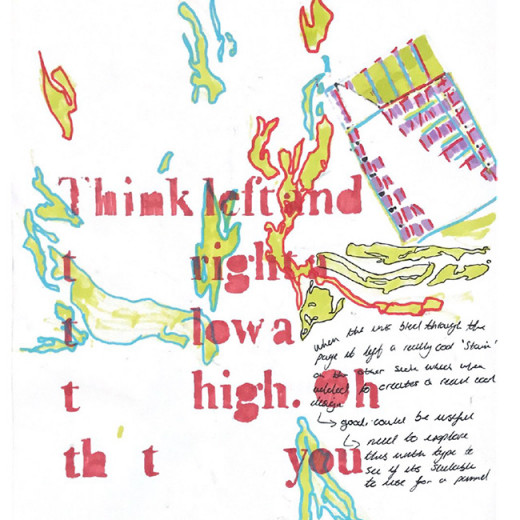 Think left and
t right a
t low a
t high. Oh
th t you
when the ink bled through the
page it left a really cool 'stain'
on the other side which when
added to creates a cool
design
good, could be useful
need to explore
this with type to
see if its suitable
to use for a pannel